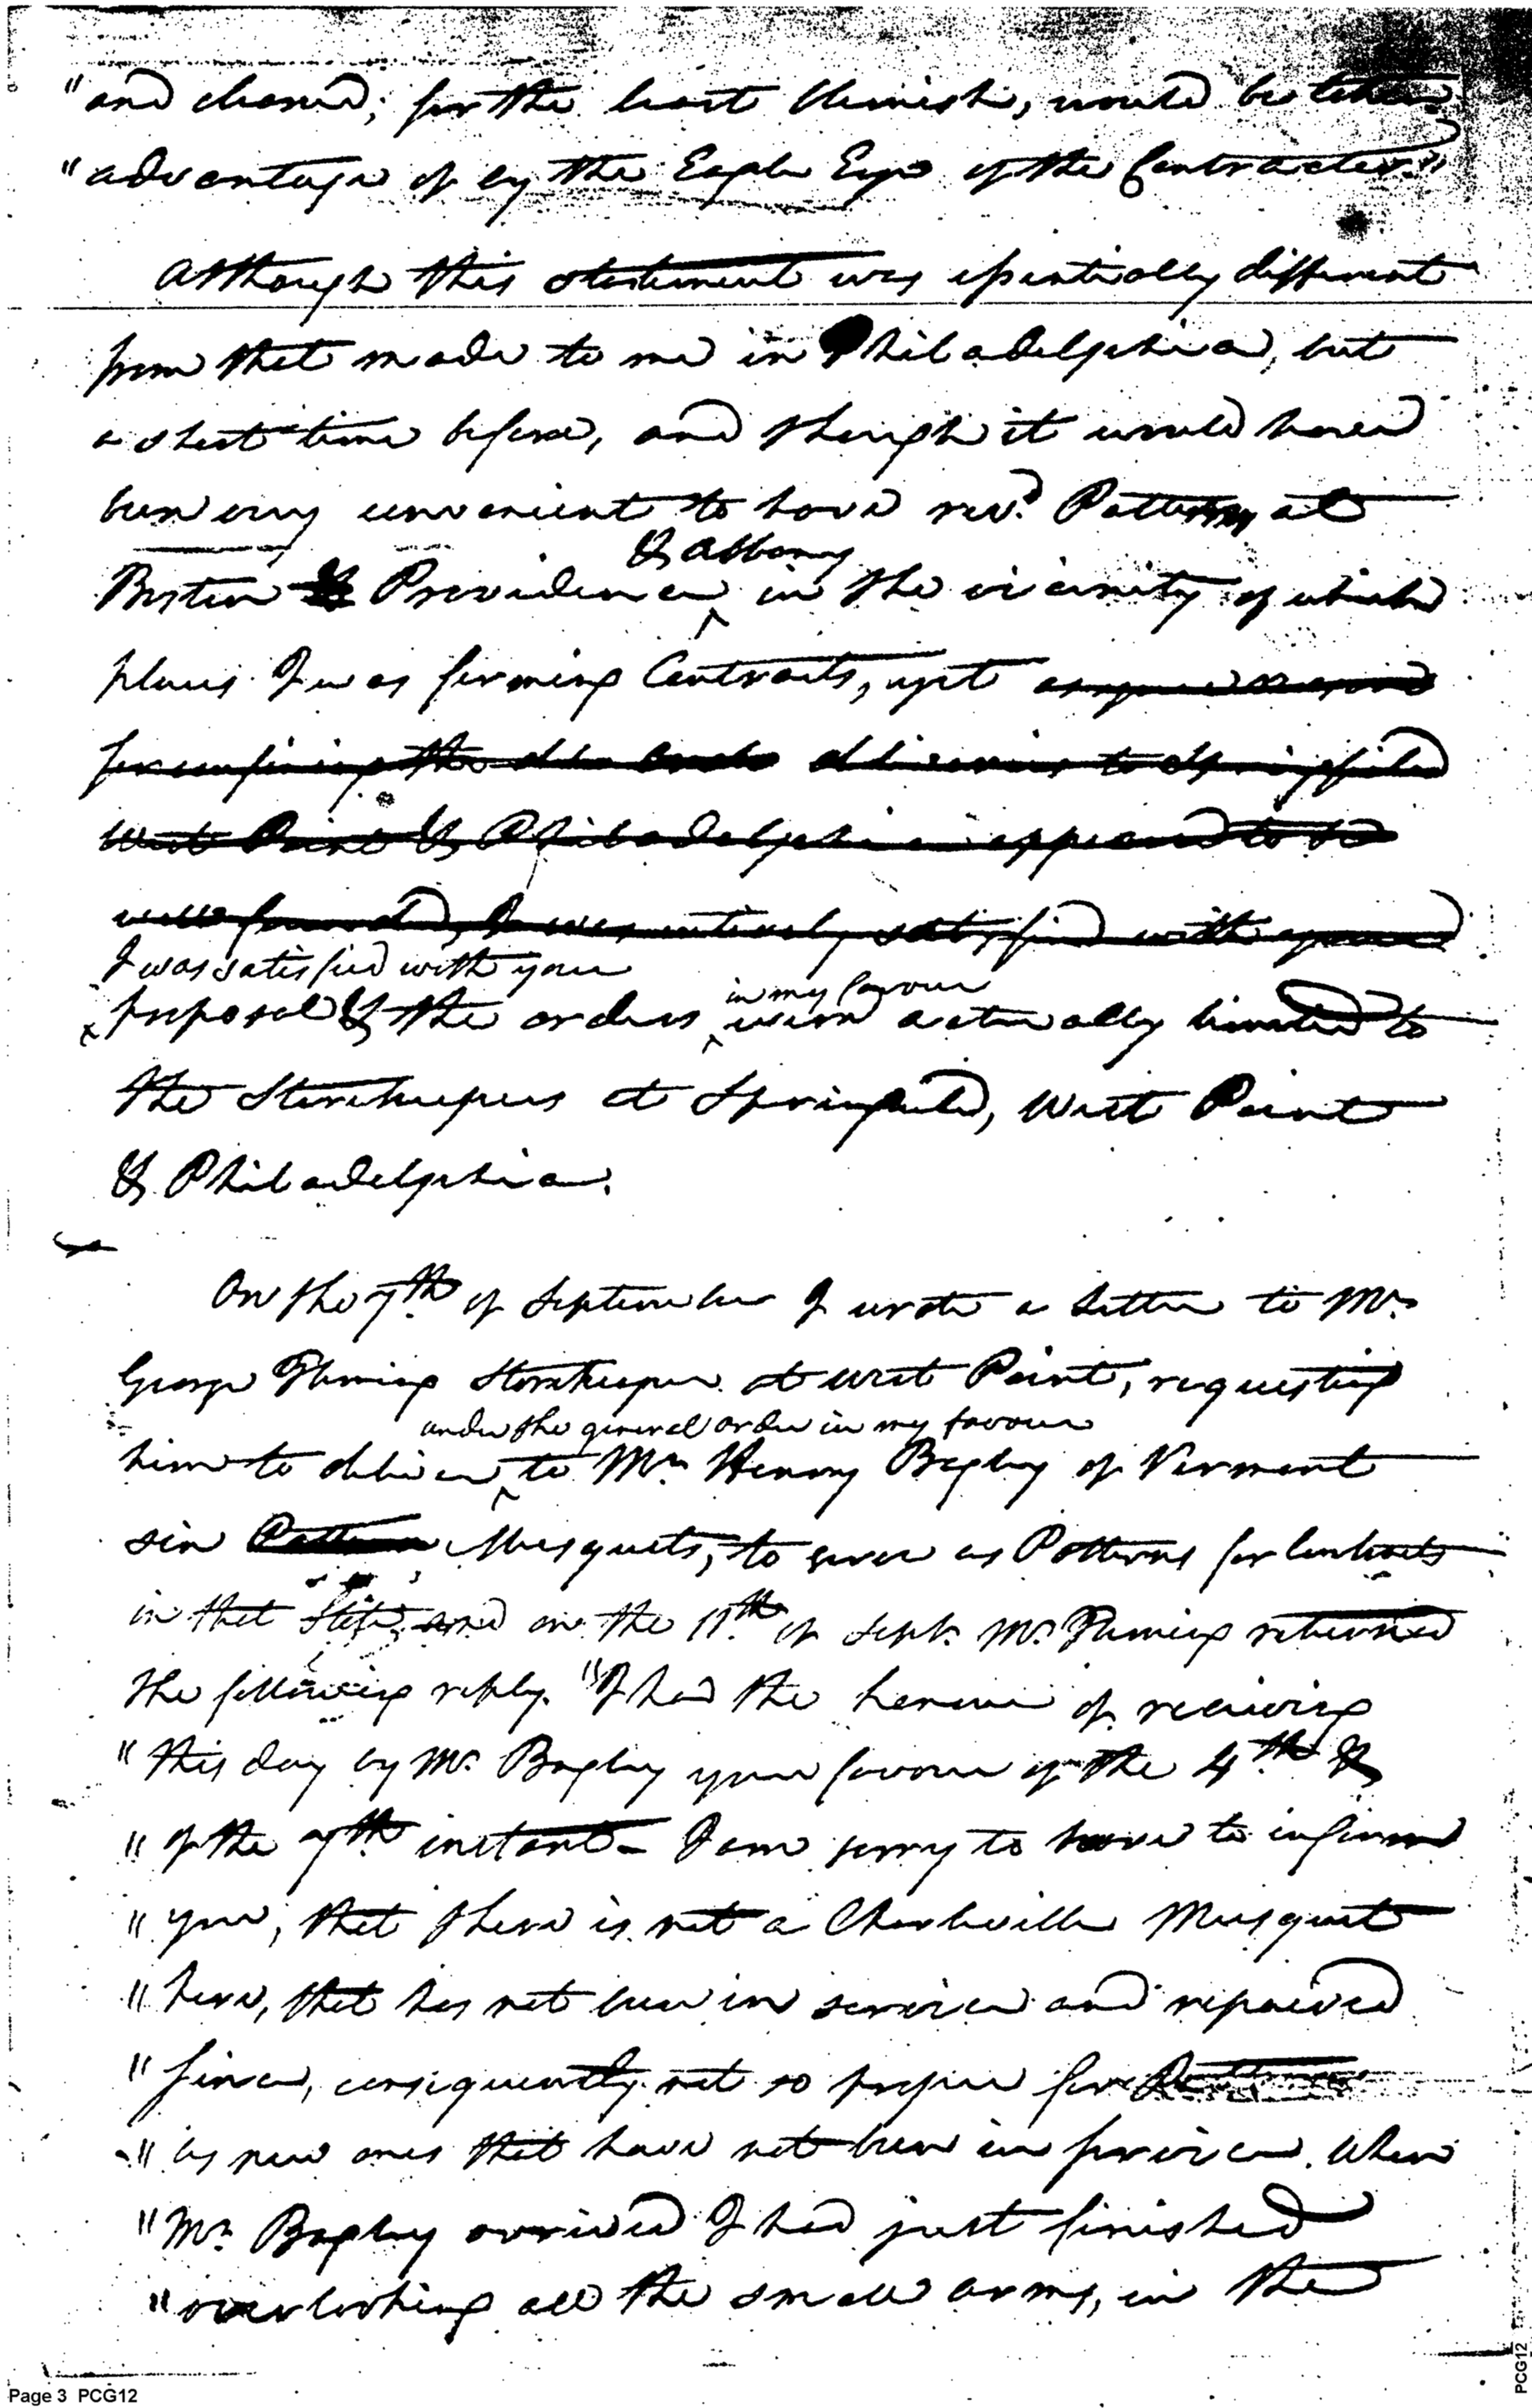 "and cleaned; for the least blemish, would be taken
"advantage of by the Eagle Eye of the Contractor."
Although this statement was essentially different
from that made to me in Philadelphia, but
a short time before, and though it would have
been very convenient to have recd. Patterns at
& Albany
Boston & Providence in the vicinity of which
places I was forming Contracts, yet
for confining the deliveries to Springfield
West Point & Philadelphia appeared to be
well founded, I was entirely satisfied with your
I was satisfied with your
in my favour
proposal & the orders were actually limited to
the Storekeepers at Springfield, West Point
& Philadelphia.
On the 7th of September I wrote a letter to Mr.
George Fleming Storekeeper at West Point, requesting
under the general order in my favour
him to deliver to Mr. Henry Bagley of Vermont
six Pattern Musquets, to serve as Patterns for Contracts
in that State, and on the 11th of Sept. Mr. Fleming returned
the following reply. "I had the honour of receiving
"this day by Mr. Bagley your favour of the 4th &
"of the 7th instant - I am sorry to have to inform
"you, that there is not a Charleville Musquet
"here, that has not been in service and repaired
"since, consequently not so proper for Patterns
"as new ones that have not been in service. When
"Mr. Bagley arrived I had just finished
"overlooking all the small arms, in the
Page 3 PCG12
PCG12